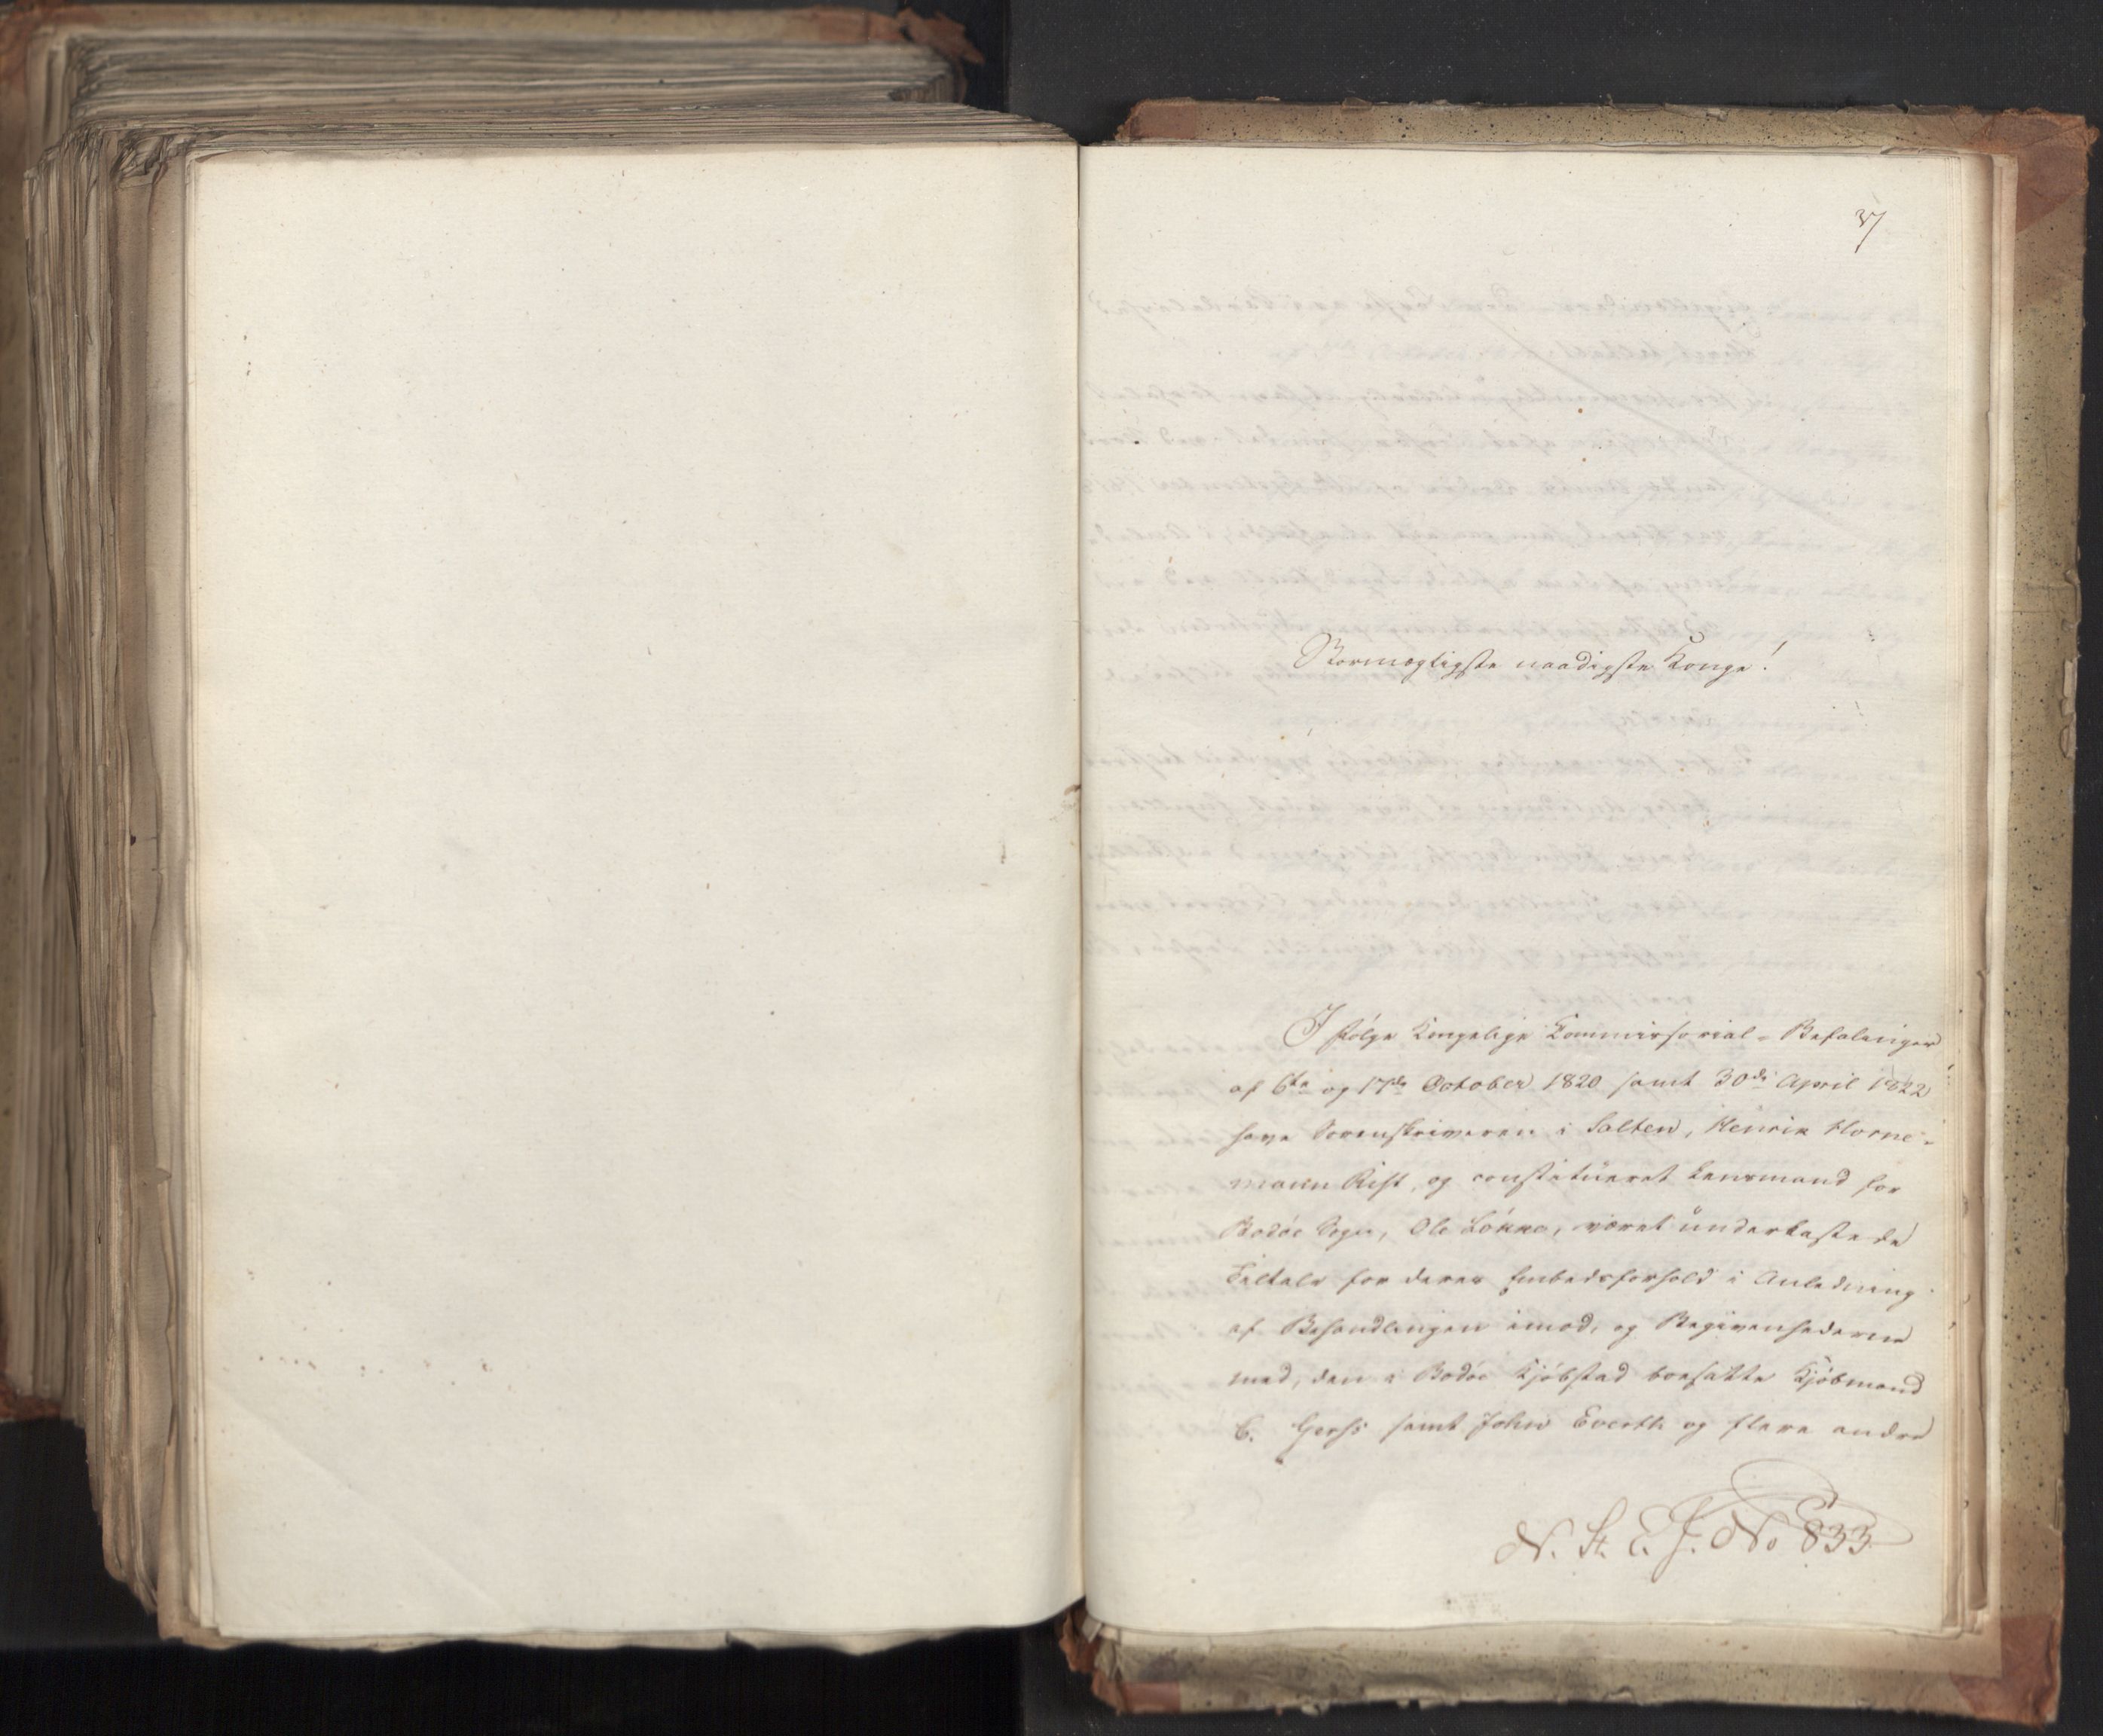 37
Stormægtigste naadigste Konge!
I følge Kongelige Commissorial-Befalinger
af 6te og 17de October 1820 samt 30de April 1822
have Sorenskriveren i Salten, Henrik Horne-
mann Rist, og constitueret Lensmand for
Bodøe Sogn, Ole Løkke, været underkastede
Tiltale for deres Embedsforhold i Anledning
af Behandlingen imod, og Begivenhederne
med, den i Bodøe Kjøbstad boesatte Kjøbmand
C. Gerss samt John Everth og flere andre
N. St. E. J. No 833